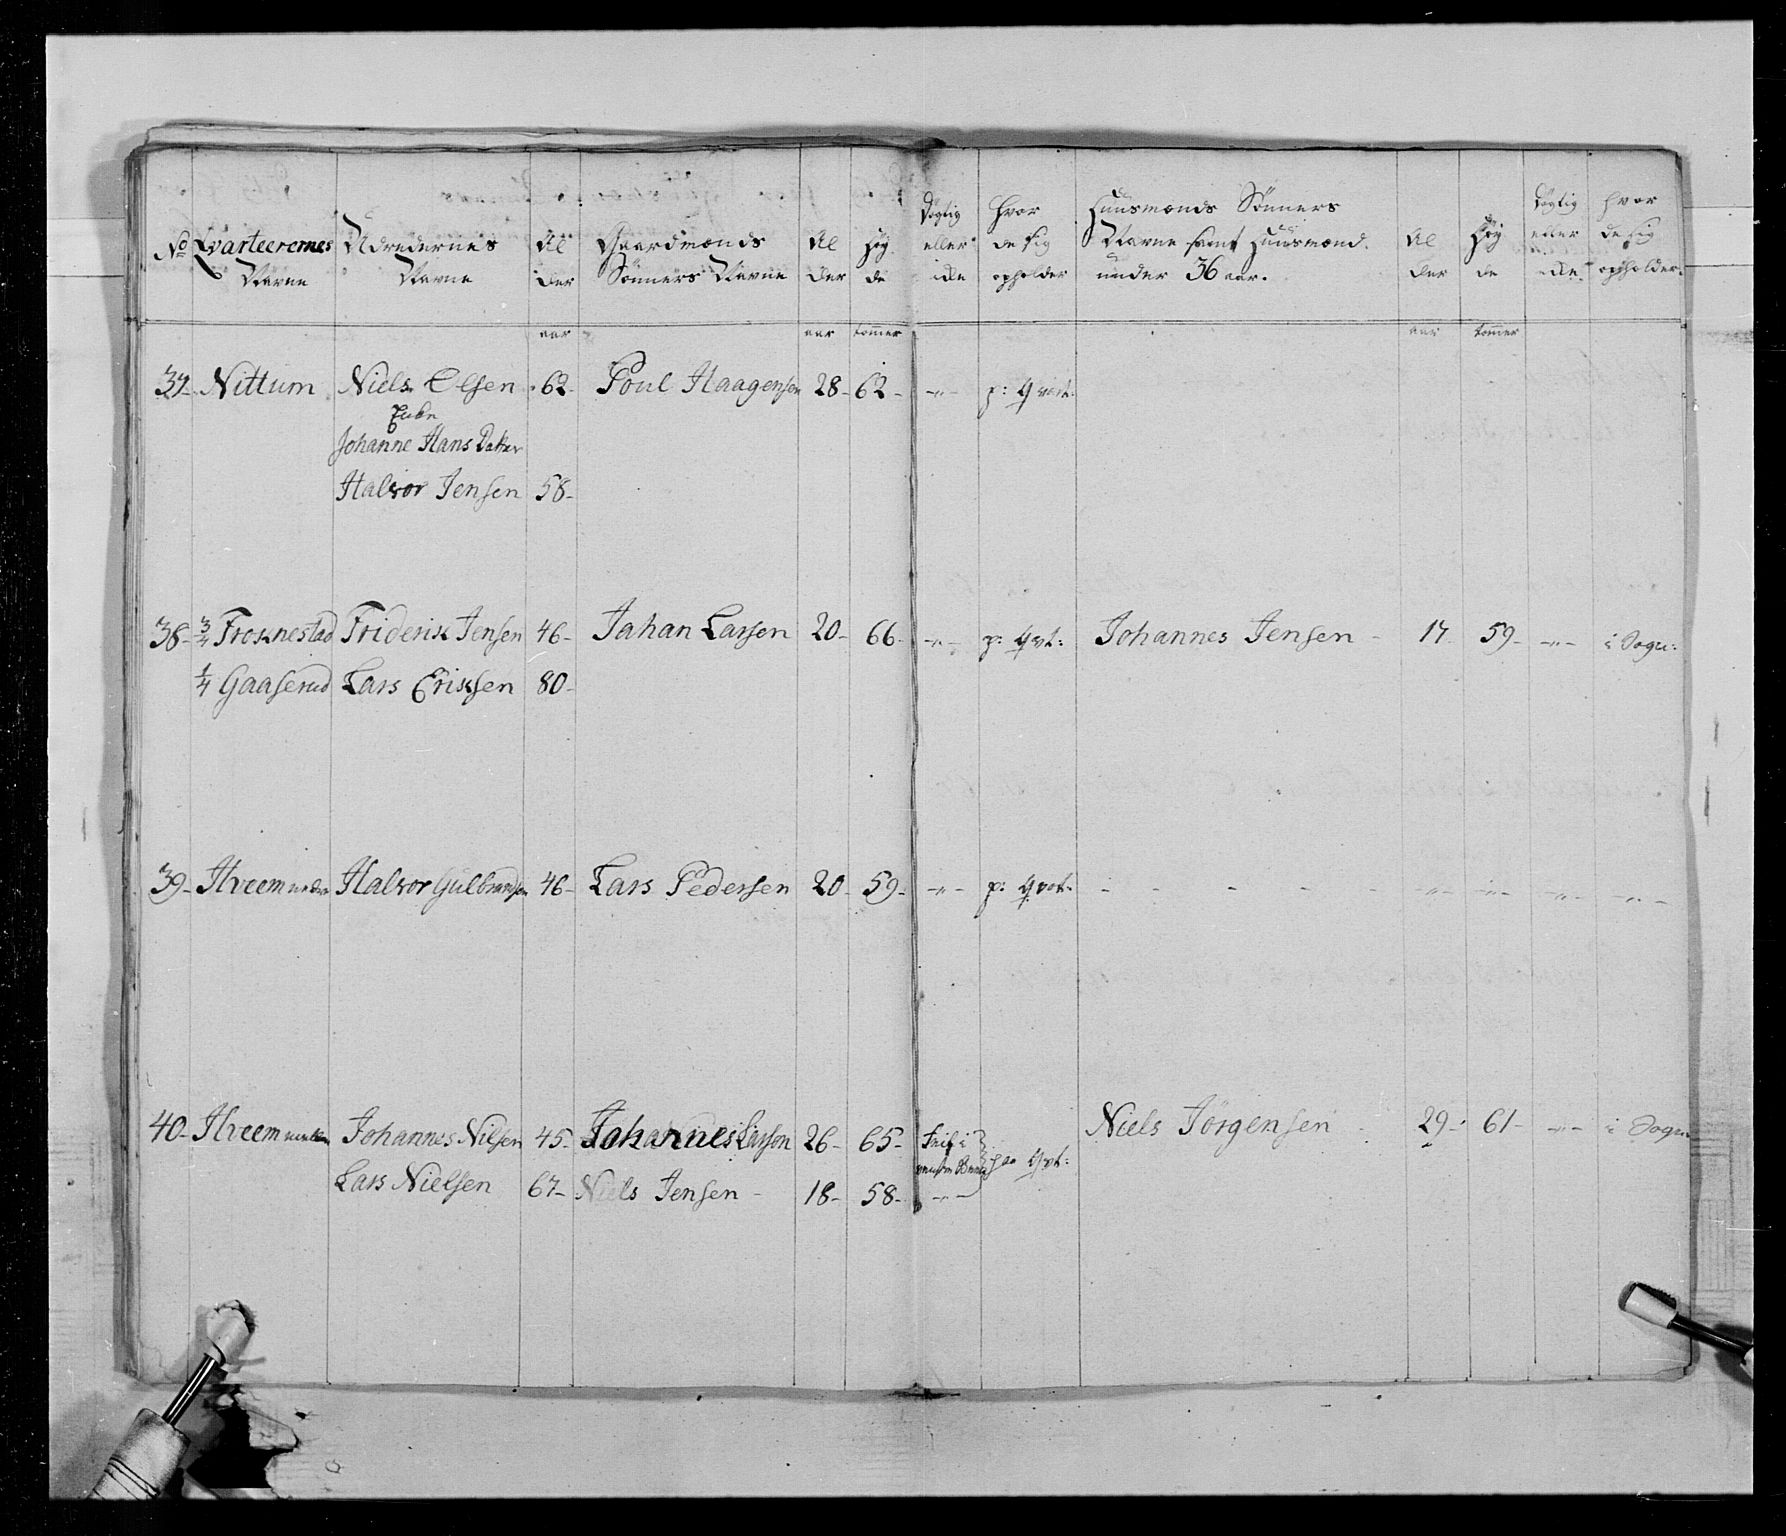 No Qvarteerernes Navne | Udredernes Navne | Alder | Gaardmænds Sønners Navne | Alder | Høyde | Dygtig eller ikke | Hvor de sig opholder | Huusmænds Sønners Navne samt Huusmænd under 36 aar. | Alder | Høyde | Dygtig eller ikke | hvor de sig opholder.
aar | aar | tommer | aar | tommer
37- Nittum | Niels Olsen | 62- | Poul Haagensen | 28- | 62- | -"- | p: Qvart.
Enke
Johanne Hans Datter
Halvor Jensen | 58-
38- 3/4 Froknestad | Friderik Jensen | 46- | Johan Larsen | 20- | 66- | -"- | p: Qvt: | Johannes Jensen - | 17 | 59- | -"- | i Sogn:
1/4 Gaaserud | Lars Eriksen | 80-
39- Hveem nedre | Halvor Gulbrandsen | 46- | Lars Pedersen | 20- | 59- | -"- | p: Qvt. | - - - - - | -"- | -"- | -"- | -"-
40- Hveem | Johannes Nilsen | 45- | Johannes Larsen | 26- | 65- | i venstre | paa Qvt: | Niels Jörgensen - | 29- | 61- | -"- | i Sogn
Lars Nielsen | 67- | Niels Jensen - | 18- | 58- | -"-